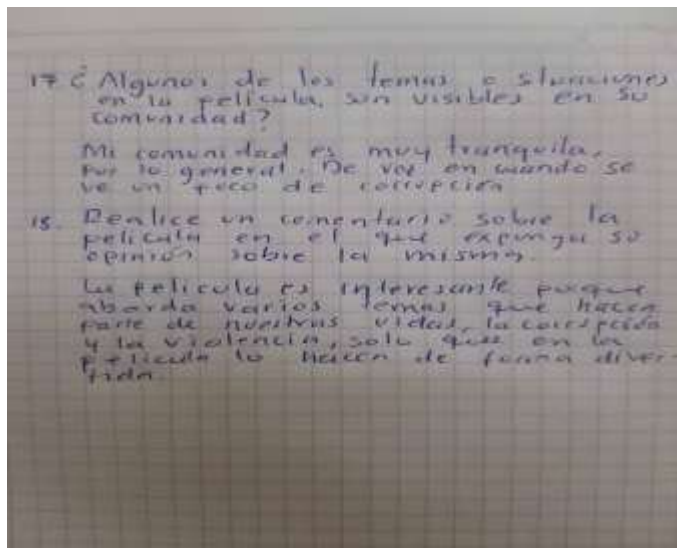 17 ¿ Algunos de los temas o situaciones
en la película, son visibles en su
comunidad?
Mi comunidad es muy tranquila,
por lo general. De vez en cuando se
ve un poco de corrupción
18. Realice un comentario sobre la
película en el que exponga su
opinión sobre la misma.
La película es interesante porque
aborda varios temas que hacen
parte de nuestras vidas, la corrupción
y la violencia, solo que en la
película lo hacen de forma diver-
tida.